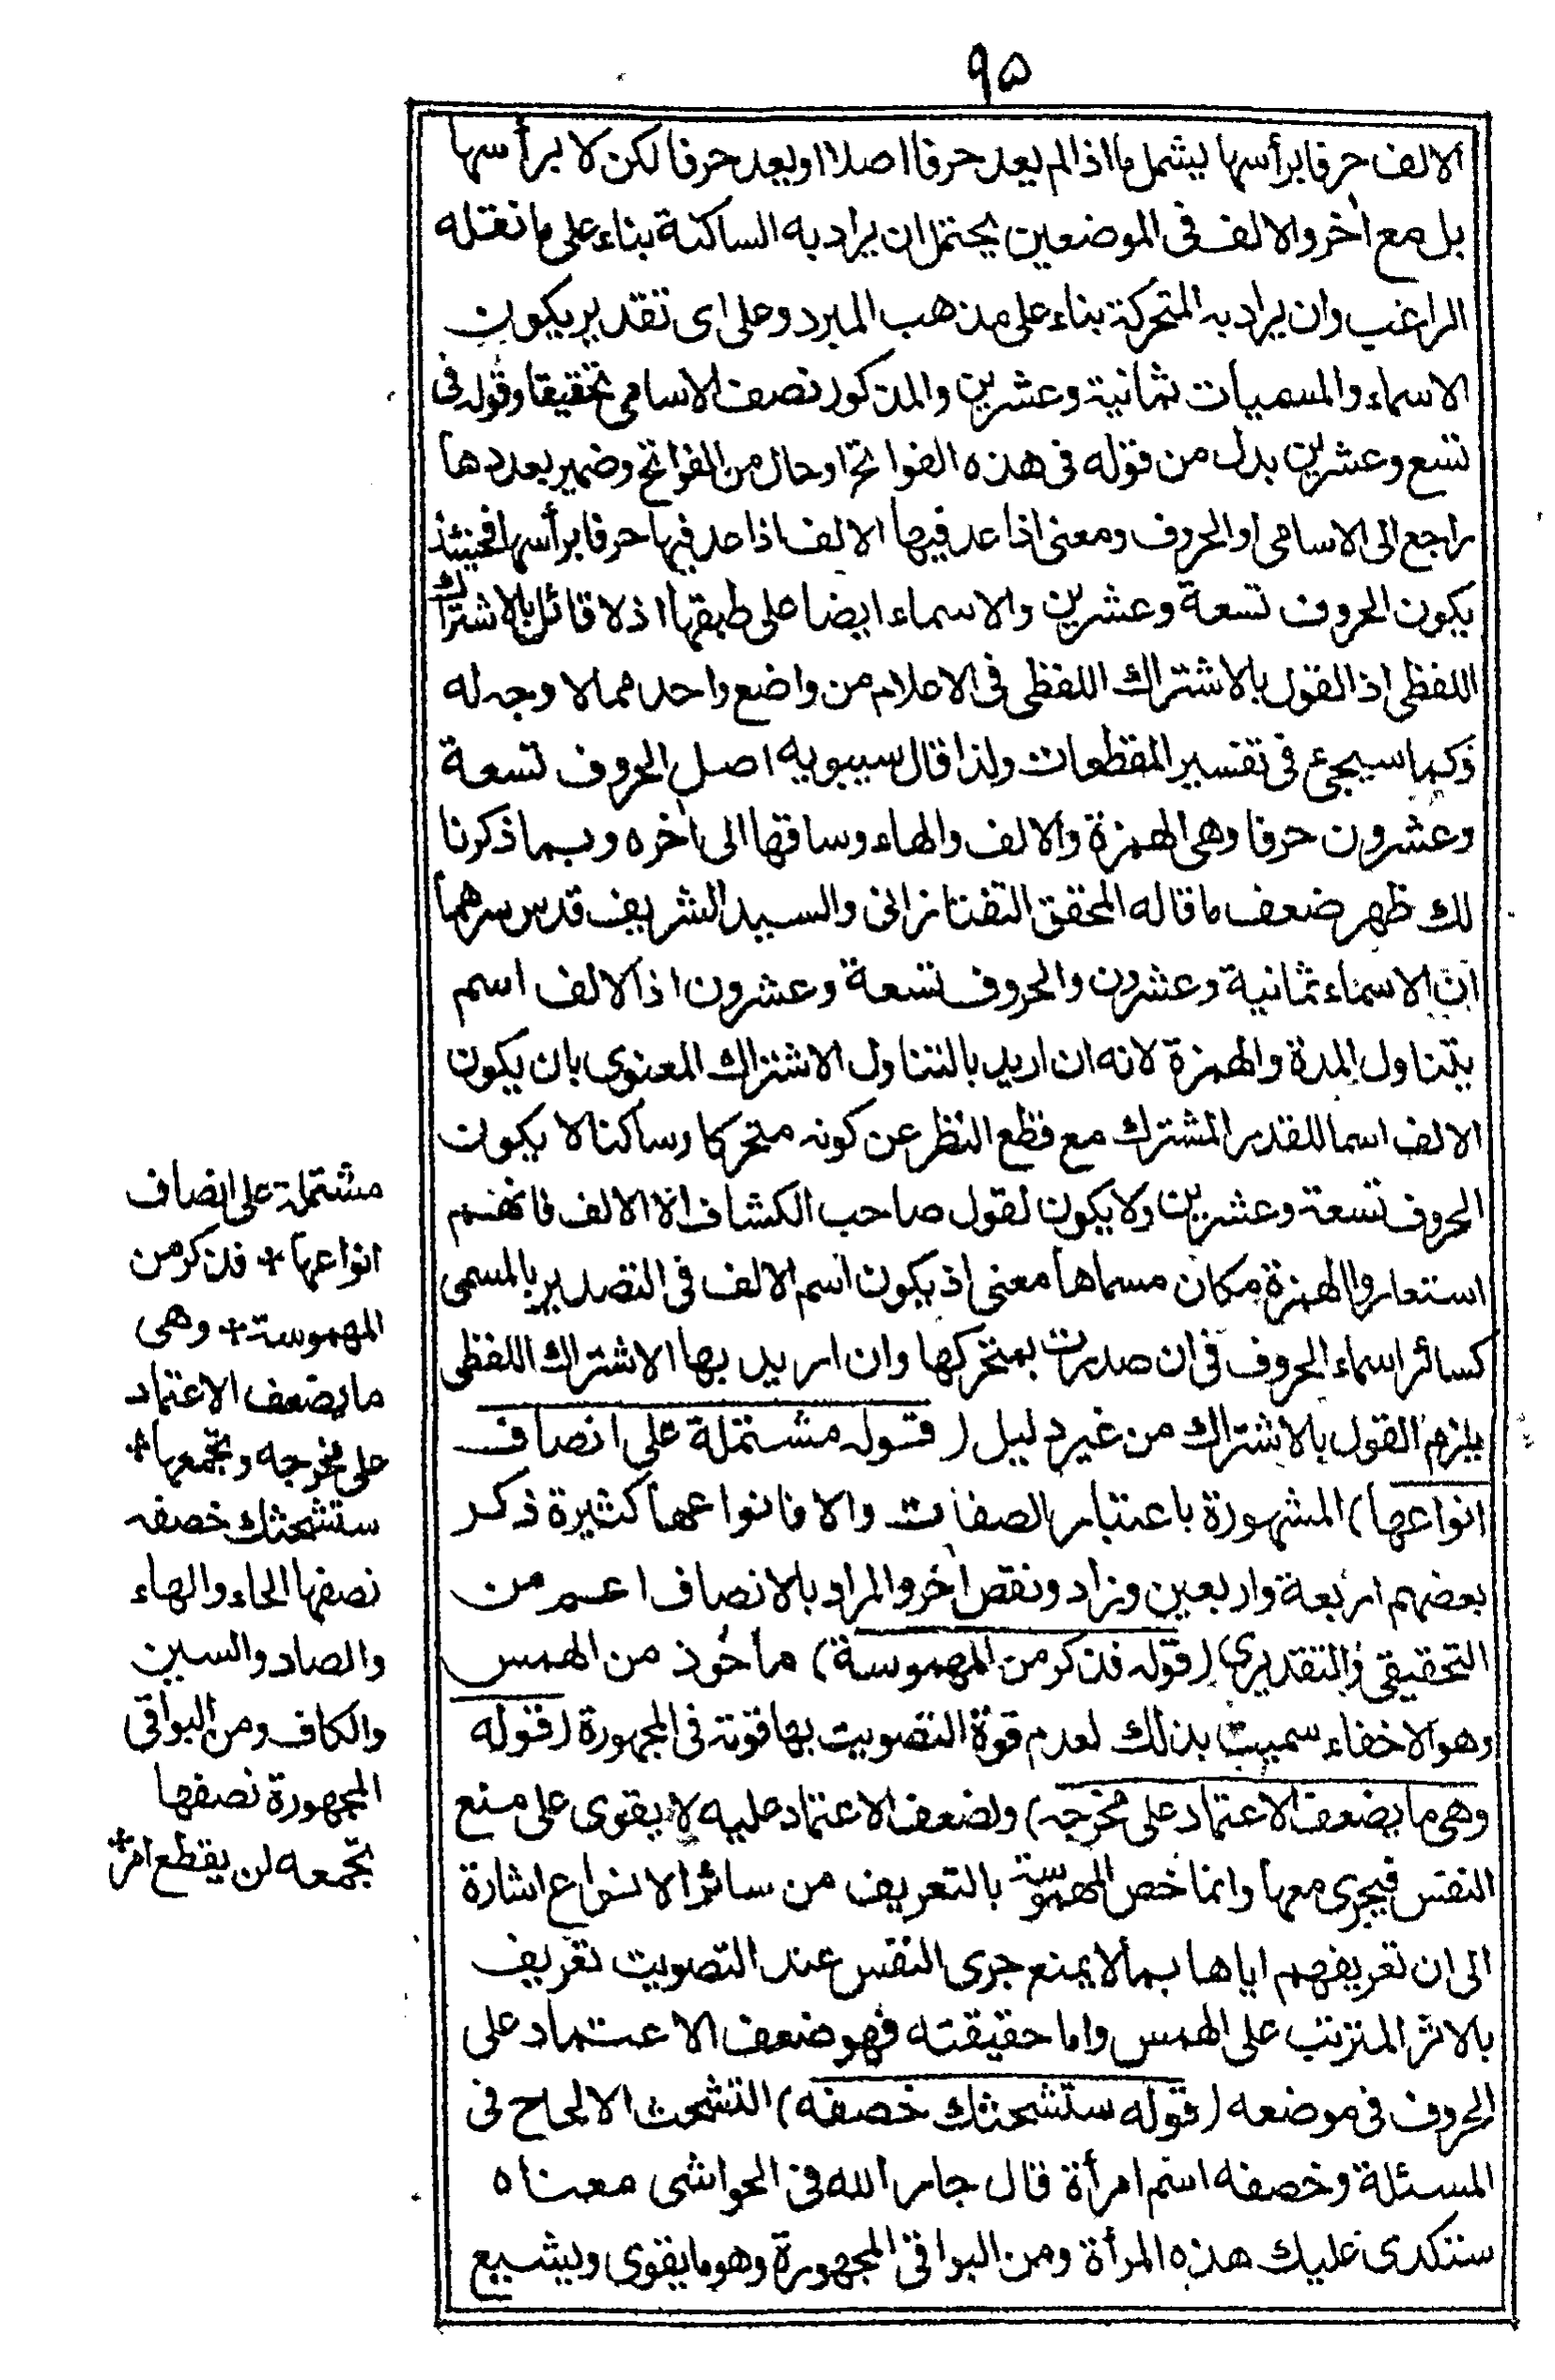 ٩٥
الالف حرفا برأسها ليشمل ما اذا لم يعد حرفا اصلا او يعد حرفا لكن لا برأسها
بل مع أخر والالف فى الموضعين يحتمل ان يراد به الساكنة بناء على ما نقله
الراغب وان يراد به المتحركة بناء على مذهب المبرد وعلى اى تقدير يكون
الاسماء والمسميات ثمانية وعشرين والمذكور نصف الاسامى تحقيقا وقوله فى
تسع وعشرين بدل من قوله فى هذه الفواتح او حال من الفواتح وضمير بعددها
راجع الى الاسامى او الحروف ومعنى اذا عد فيها الالف اذا عد فيها حرفا برأسها فحينئذ
يكون الحروف تسعة وعشرين والاسماء ايضا على طبقها اذ لا قائل بالاشتراك
اللفظى اذ القول بالاشتراك اللفظى فى الاعلام من واضع واحد مما لا وجه له
كما سيجئ فى تفسير المقطعات ولذا قال سيبويه اصل الحروف تسعة
وعشرون حرفا وهى الهمزة والالف والهاء وساقها الى أخره وبما ذكرنا
لك ظهر ضعف ما قاله المحقق التفتازانى والسيد الشريف قدس سرهما
ان الاسماء ثمانية وعشرون والحروف تسعة وعشرون اذ الالف اسم
يتناول المدة والهمزة لانه ان اريد بالتناول الاشتراك المعنوى بان يكون
الالف اسما للقدر المشترك مع قطع النظر عن كونه متحركا وساكنا لا يكون
الحروف تسعة وعشرين ولا يكون لقول صاحب الكشاف الا الالف فانهم
استعاروا الهمزة مكان مسماها معنى اذ يكون اسم الالف فى التصدير بالمسمى
كسائر اسماء الحروف فى ان صدرت بمتحركها وان اريد بها الاشتراك اللفظى
يلزم القول بالاشتراك من غير دليل (قوله مشتملة على انصاف
انواعها) المشهورة باعتبار الصفات والا فانواعها كثيرة ذكر
بعضهم اربعة واربعين وزاد ونقص أخر والمراد بالانصاف اعم من
التحقيقى والتقديرى (قوله فذكر من المهموسة) مأخوذ من الهمس
وهو الاخفاء سميت بذلك لعدم قوة التصويت بها قوته فى المجهورة (قوله
وهى ما يضعف الاعتماد على مخرجه) ولضعف الاعتماد عليه لا يقوى على منع
النفس فيجرى معها وانما خص المهموسة بالتعريف من سائر الانواع اشارة
الى ان تعريفهم اياها بما لا يمنع جرى النفس عند التصويت تعريف
بالاثر المترتب على الهمس واما حقيقته فهو ضعف الاعتماد على
الحروف فى موضعه (قوله ستشحثك خصفه) التشحث الالحاح فى
المسئلة وخصفه اسم امرأة قال جار الله فى الحواشى معناه
ستكدى عليك هذه المرأة ومن البواقى المجهورة وهو ما يقوى ويشبع
مشتملة على انصاف
انواعها + فذكر من
المهموسة + وهى
ما يضعف الاعتماد
على مخرجه ويجمعها +
ستشحثك خصفه
نصفها الحاء والهاء
والصاد والسين
والكاف ومن البواقى
المجهورة نصفها
يجمعه لن يقطع امر +